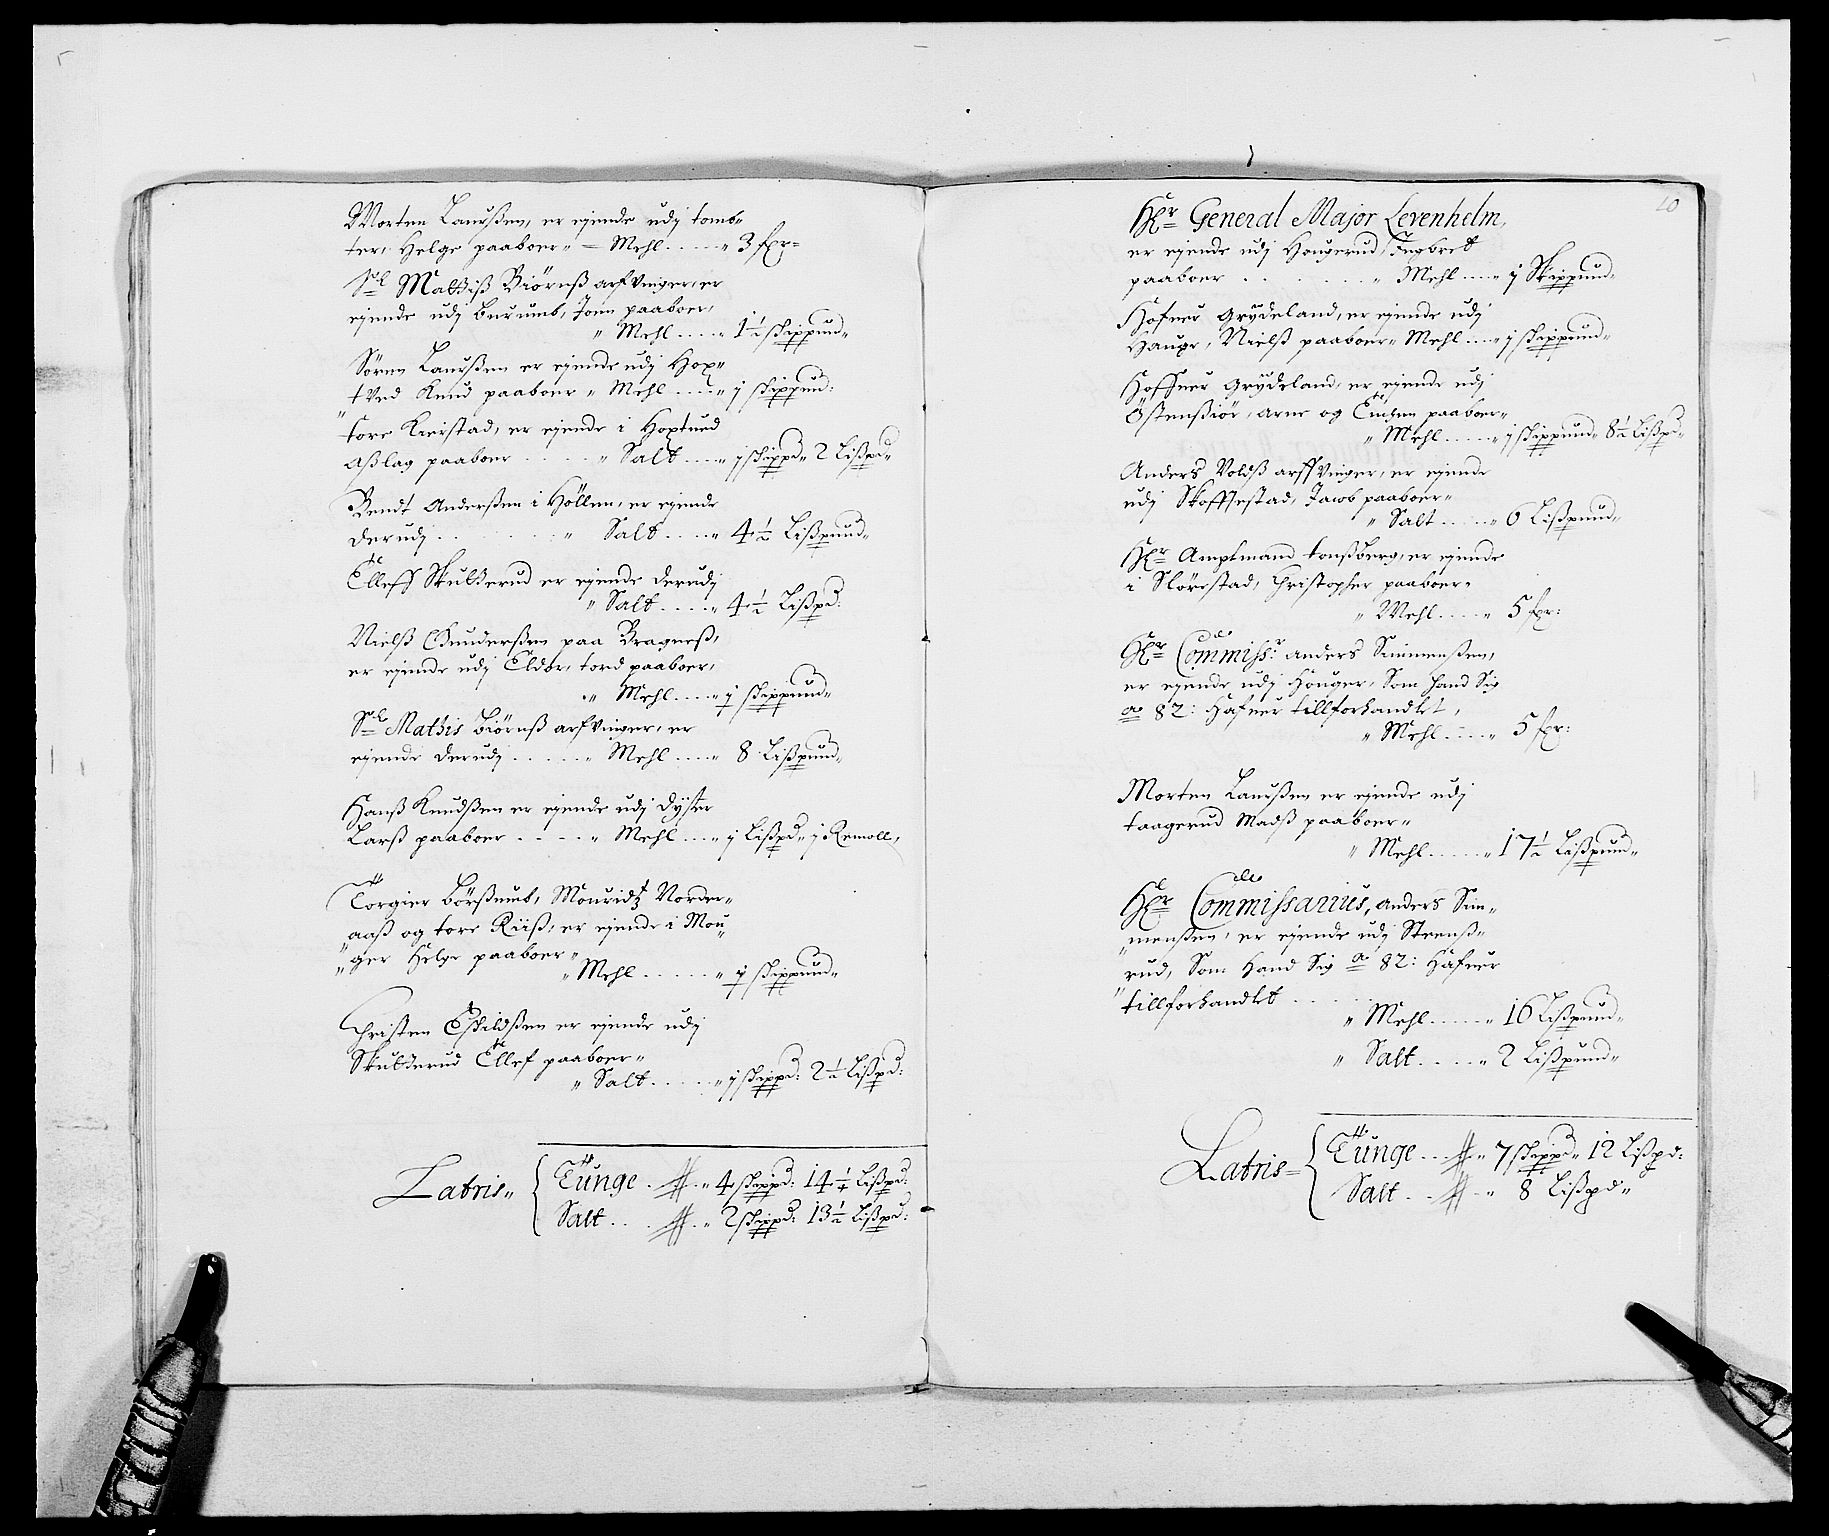 Morten Laurßen, er ejende udj tomb-
ter, Helge paaboer " Mehl ..... " 3 fxr-
Sl Mathiß Biørnß arfvinger, er
ejende udj Burumb, Joen paaboer,
" Mehl ..... " 1½ skippund-
Sören Laurßen er ejende udj Hop-
" tved Knud paaboer " Mehl .... " j skippund:
tore Kierstad, er ejende i Hoptued
Aßlag paaboer ..... " Salt .... " j skippd- 2 Lißpd-
Bendt Anderßen i Höllen, er ejende
derudj ........ " Salt .... " 4½ Lißpund-
Elleff Skulterud er ejende derudj
" Salt .... " 4½ Lißpd:
Nielß Gunderßen paa Bragneß,
er ejende udj Eldor, tord paaboer,
" Mehl .... " j skippund-
Sl Mathis Biörnß arfvinger, er
ejende derudj ..... " Mehl .... " 8 Lißpund-
Hanß Knudßen er ejende udj Dyster
Larß paaboer ..... " Mehl .... " j Lißpd- j Remoll,
Torgier Börßumb, Mouridtz Norder-
" aaß og tore Riiß, er ejende i Mou
" ger Helge paaboer "
" Mehl ..... " j skippund-
Christen Eskildßen er ejende udj
Skulterud Ellef paaboer "
" Salt ..... " j skippd: 2½ Lißpd:
Latris " { Tunge . # . " 4 skippd: 14¼ Lißpd:
Salt ... # . " 2 skippd: 13½ Lißpd:
10
Hr General Major Levenhelm,
er ejende udj Hougerud, Ingbret
paaboer ....... " Mehl .... " j Skippund-
Hofner Grydeland, er ejende udj
Hauger, Nielß paaboer " Mehl .... " j skippund-
Hoffner Grydeland, er ejende udj
Östenßiör, Arne og paaboer "
" Mehl ..... " j skippund- 8½ Lißpd-
Anders Voldß arffvinger, er ejende
udj Skoffsestad, Jacob paaboer "
" Salt ..... " 6 Lißpund-
Hr Amptmand tonßberg, er ejende
i Slörestad, Christopher paaboer "
" Mehl .... " 5 fxr:
Hr Commiss: Anders Simmenßen,
er ejende udj Houger, Som hand Sig
ao 82: Hafner tillforhandlet,
" Mehl .... " 5 fxr:
Morten Laurßen er ejende udj
taagerud Madß paaboer "
" Mehl ..... " 17½ Lißpund-
Hr Commissarius, Anders Sim-
" menßen, er ejende udj Steenß-
rud, Som Hand Sig ao 82: Hafner
" tillforhandlet .....
" Mehl ..... " 16 Lißpund-
" Salt ..... " 2 Lißpund-
Latris { Tunge ... # " 7 skippd- 12 Lißpd:
Salt .. # . " 8 Lißpd-